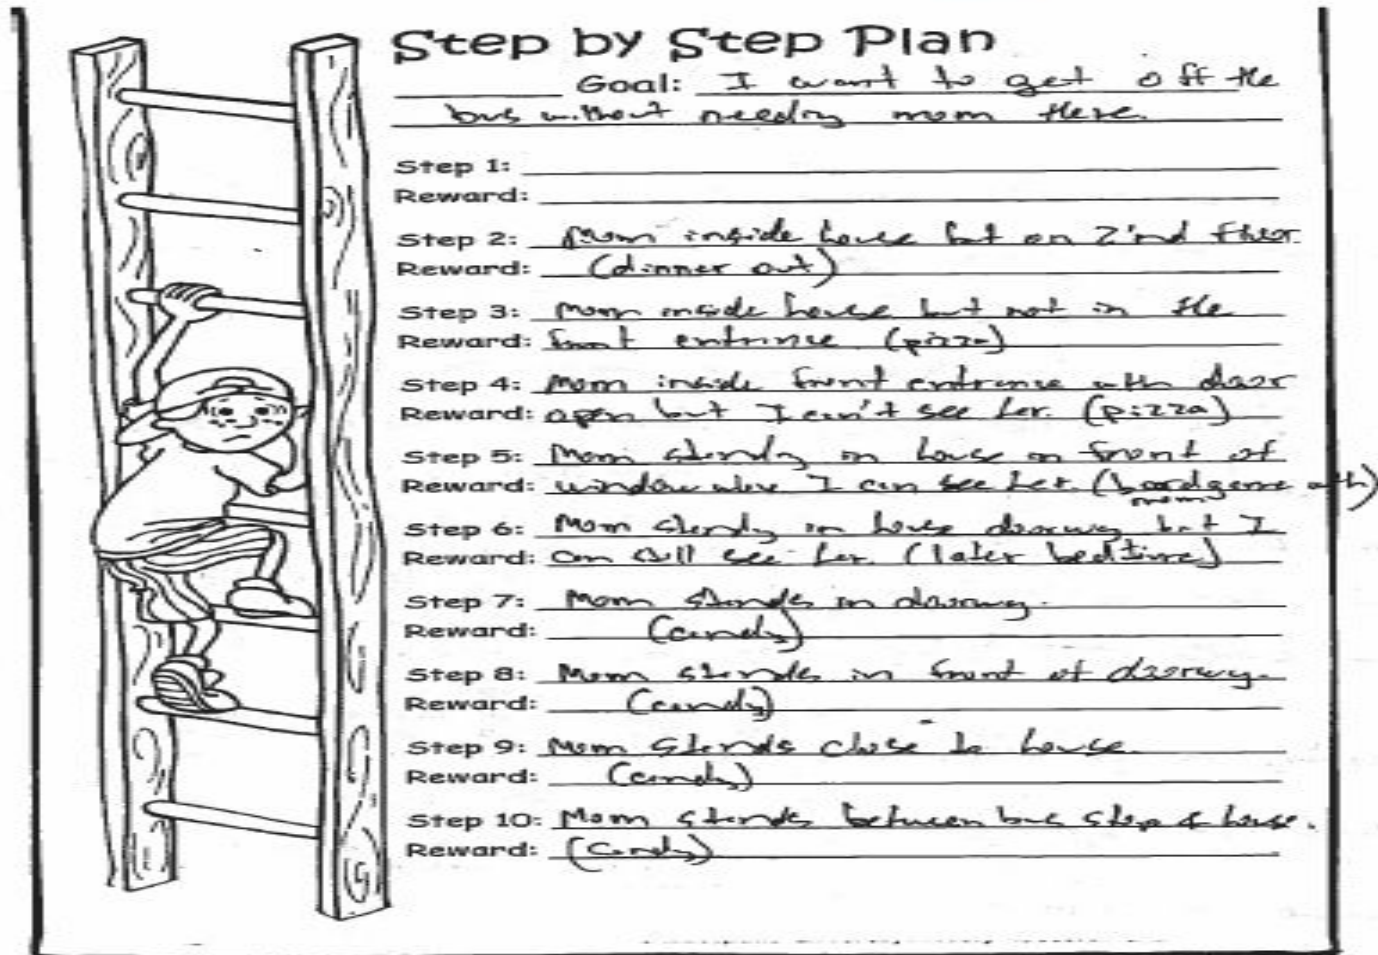 Step by Step Plan
Goal: I want to get off the
bus without needing mom there.
Step 1:
Reward:
Step 2: Mom inside house but on 2'nd floor
Reward: (dinner out)
Step 3: Mom inside house but not in the
Reward: front entrince (pizza)
Step 4: Mom inside front entrance with door
Reward: open but I can't see her. (pizza)
Step 5: Mom standing in house in front of
Reward: window where I can see her. (boardgame with)
mom
Step 6: Mom standing in house doorway but I
Reward: can still see her. (later bedtime)
Step 7: Mom stands in doorway.
Reward: (candy)
Step 8: Mom stands in front of doorway.
Reward: (candy)
Step 9: Mom stands close to house.
Reward: (candy)
Step 10: Mom stands between bus stop & house.
Reward: (candy)